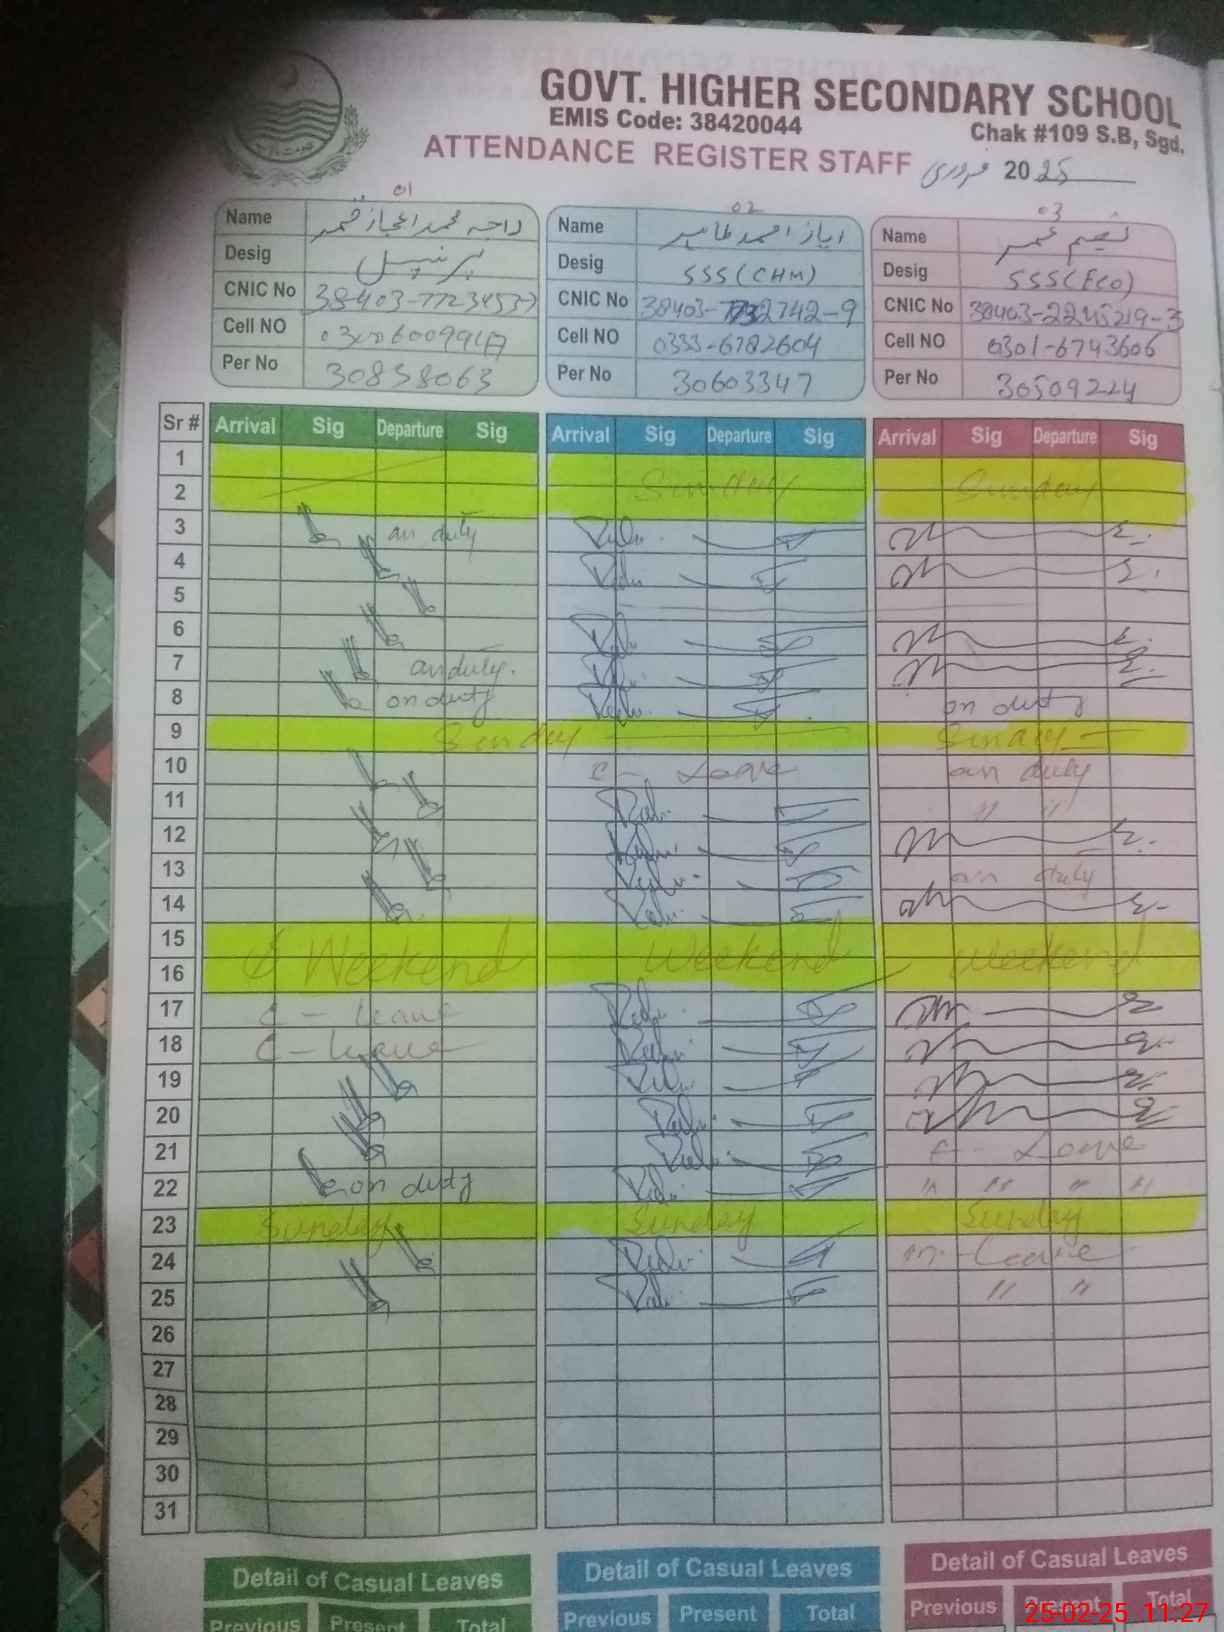 GOVT. HIGHER SECONDARY SCHOOL
EMIS Code: 38420044
Chak #109 S.B, Sgd.
ATTENDANCE REGISTER STAFF فروری 2025
01 02 03
Name راجہ محمد اعجاز Name ایاز احمد طاہر Name
Desig پرنسپل Desig SSS (CHM) Desig SSS (ECO)
CNIC No CNIC No CNIC No
Cell NO Cell NO 0333-6782604 Cell NO 0301-6743606
Per No 30858063 Per No 30603347 Per No 30509224
Sr # Arrival Sig Departure Sig Arrival Sig Departure Sig Arrival Sig Departure Sig
1
2 Sunday Sunday
3 on duty
4
5
6
7 on duty.
8 on duty on duty
9 Sunday Sunday
10 C - Leave on duty
11 " "
12
13 on duty
14
15
16 Weekend Weekend Weekend
17 C - Leave
18 C - Leave
19
20
21 C - Leave
22 on duty " " " "
23 Sunday Sunday Sunday
24 m - Leave
25 " "
26
27
28
29
30
31
Detail of Casual Leaves Detail of Casual Leaves Detail of Casual Leaves
Previous Present Total Previous Present Total Previous Present Total
25-02-25 11:27